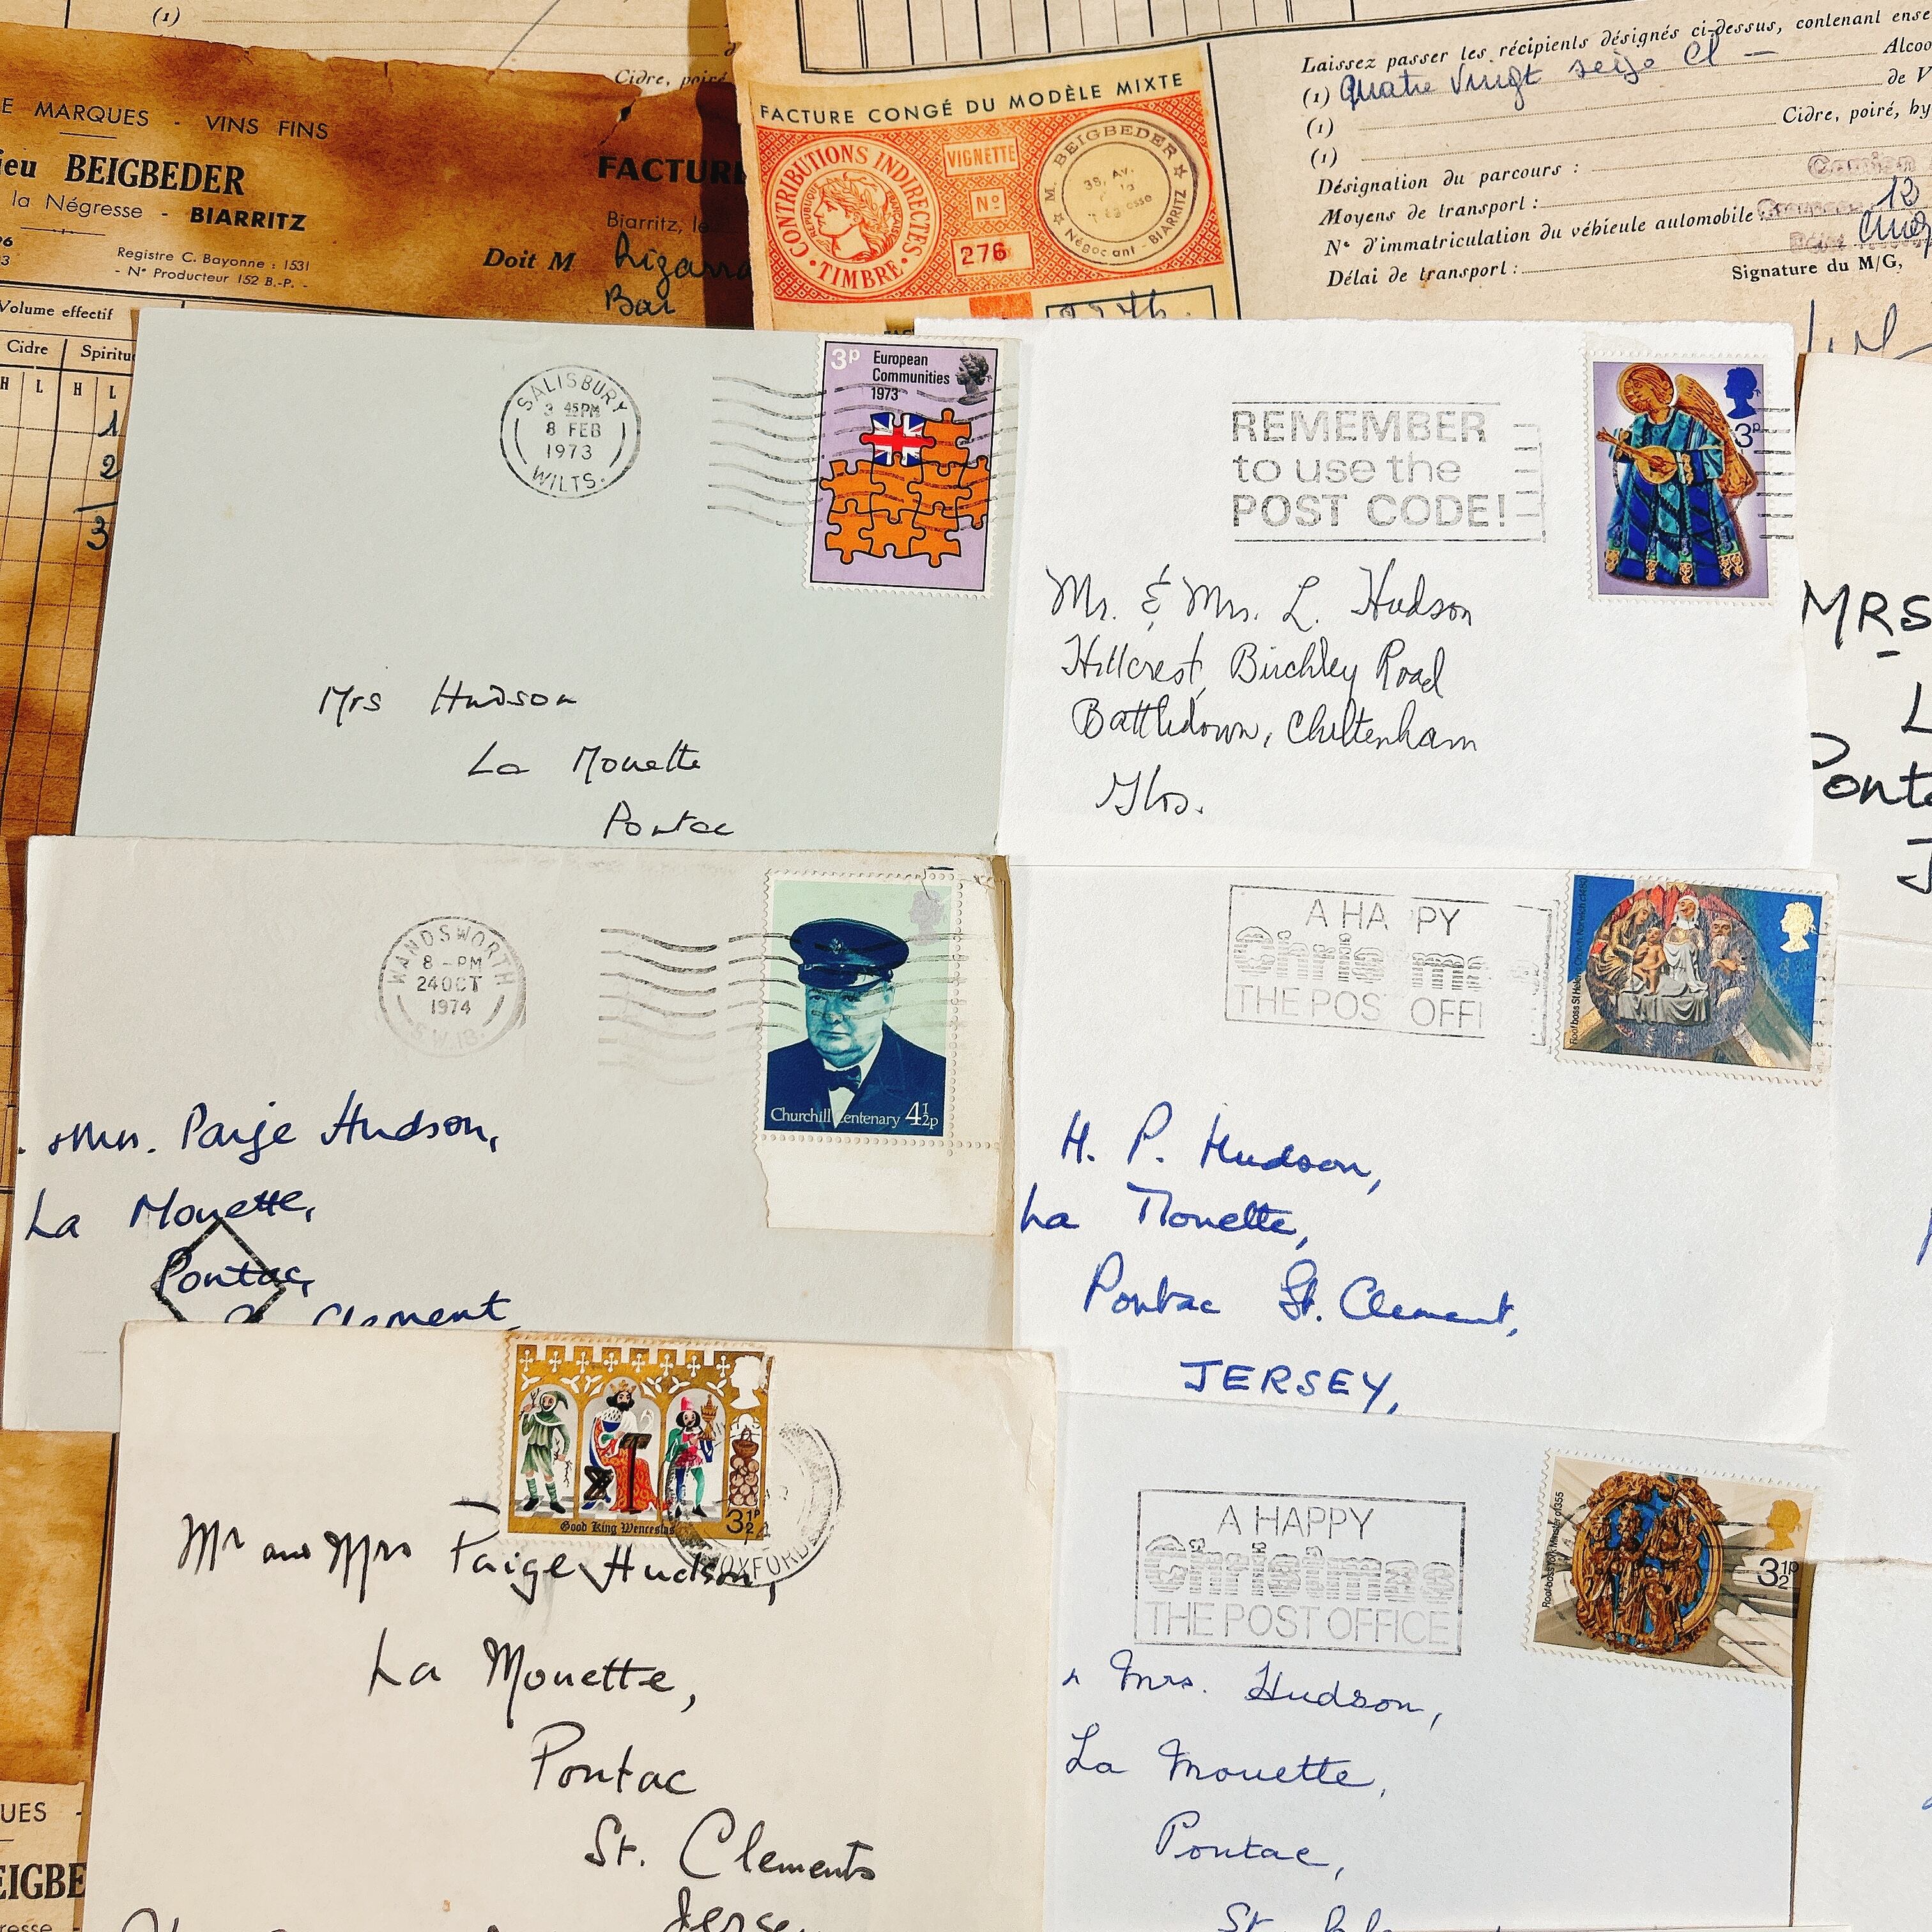 (1)
Cidre, poiré
E MARQUES - VINS FINS
ieu BEIGBEDER
la Négresse - BIARRITZ
Registre C. Bayonne : 1531
- N° Producteur 152 B.-P. -
FACTURE
Biarritz, le
Doit M
Bar
Volume effectif
Cidre Spiritu
H L H L
1
2
3
FACTURE CONGÉ DU MODÈLE MIXTE
CONTRIBUTIONS INDIRECTES
TIMBRE
VIGNETTE
N°
276
M. BEIGBEDER
38, AV.
Négociant - BIARRITZ
Laissez passer les récipients désignés ci-dessus, contenant ense
(1) quatre vingt seize cl - Alcoo
(1) de V
(1) Cidre, poiré, hy
Désignation du parcours :
Moyens de transport :
N° d'immatriculation du véhicule automobile
Délai de transport :
Signature du M/G,
SALISBURY
3 45PM
8 FEB
1973
WILTS.
3p European
Communities
1973
Mrs Hudson
La Mouette
Pontac
REMEMBER
to use the
POST CODE!
3p
Mr. & Mrs. L. Hudson
Hillcrest, Birchley Road
Battledown, Cheltenham
Glos.
MRS
L
Ponta
J
WANDSWORTH
8 - PM
24 OCT
1974
S.W.18.
Churchill Centenary 4½p
& Mrs. Paige Hudson,
La Mouette,
Pontac,
Clement,
A HA PY
Chris ma
THE POS OFFI
H. P. Hudson,
La Mouette,
Pontac St. Clement,
JERSEY,
Good King Wenceslas 3½p
OXFORD
Mr and Mrs Paige Hudson,
La Mouette,
Pontac
St. Clements
Jersey
A HAPPY
Christmas
THE POST OFFICE
3½p
Mrs. Hudson,
La Mouette,
Pontac,
St.
UES -
EIGBE
resse -